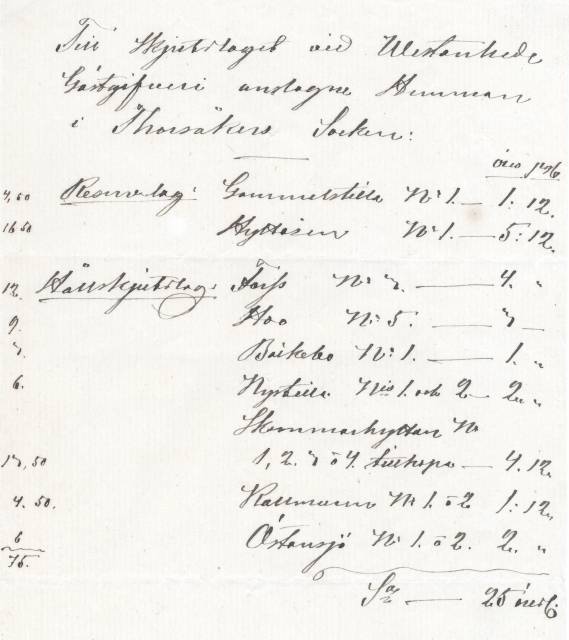 Till Skjutslaget vid Westanhede
Gästgifveri anslagne Hemman
i Thorsåkers Socken:
öres
4,50 Reservlag: Gammelstilla No 1. — 1: 12.
16 50 Hyttåsen No 1. — 5: 12.
12. Hållskjutslag: Fors No 3. — 4. „
9. Hoo No 5. — 3 —
3. Bäckebo No 1. — 1. „
6. Nystilla No 1. och 2 — 2. „
Skommarhyttan No
13,50 1, 2. 3 o 4. tillhopa — 4. 12.
4. 50. Kallmann No 1. o 2 1: 12.
6 Östansjö No 1. o 2. 2. „
75.
Sa — 25